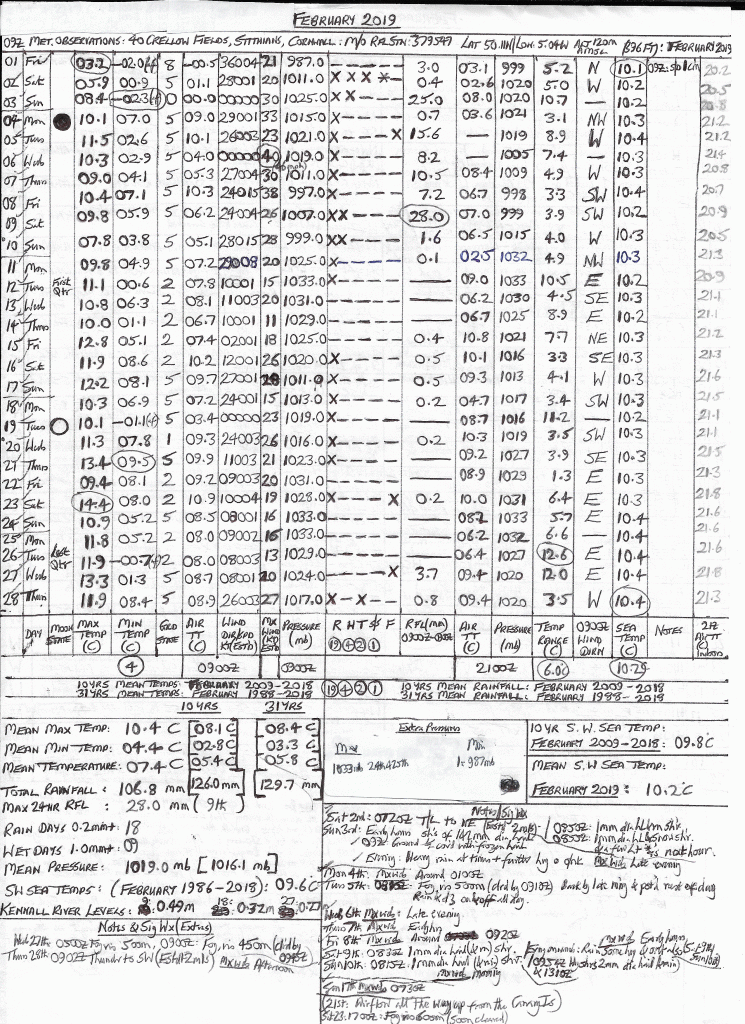 FEBRUARY 2019
09Z MET. OBSERVATIONS: 40 CRELLOW FIELDS, STITHIANS, CORNWALL: M/O RFL STN: 379547 LAT 50.11N/LON: 5.04W FEBRUARY 2019
01 Fri 03.2 -02.0 8 -00.5 36004 21 987.0 3.0 03.1 999 5.2 N 10.1 20.2
02 Sat 05.9 00.9 5 01.1 28001 20 1011.0 X X X X - 0.4 02.6 1020 5.0 W 10.2 20.5
03 Sun 08.4 -02.3 0 00.0 00000 30 1025.0 X X - - - 25.0 08.0 1020 10.7 — 10.2 20.8
04 Mon 10.1 07.0 5 09.0 29001 33 1015.0 X - - - - 0.7 03.6 1021 3.1 NW 10.3 21.2
05 Tues 11.5 02.6 5 10.1 26003 23 1021.0 X - - - X 15.6 — 1019 8.9 W 10.4 21.2
06 Wed 10.3 02.9 5 04.0 00000 40 1019.0 X - - - - 8.2 — 1005 7.4 — 10.3 21.4
07 Thurs 09.0 04.1 5 05.3 27004 30 1011.0 X - - - - 10.5 08.4 1009 4.9 W 10.3 20.8
08 Fri 10.4 07.1 5 10.3 24015 38 997.0 X - - - - 7.2 06.7 998 3.3 SW 10.4 20.7
09 Sat 09.8 05.9 5 06.2 24004 26 1007.0 X X - - - 28.0 07.0 999 3.9 SW 10.2 20.9
10 Sun 07.8 03.8 5 05.1 28015 28 999.0 X X - - - 1.6 06.5 1015 4.0 W 10.3 20.5
11 Mon 09.8 04.9 5 07.2 29008 20 1025.0 X - - - - 0.1 02.5 1032 4.9 NW 10.3 21.3
12 Tues First Qtr 11.1 00.6 2 07.8 10001 15 1033.0 X - - - - — 09.0 1033 10.5 E 10.2 20.9
13 Wed 10.8 06.3 2 08.1 11003 20 1031.0 - - - - - — 06.2 1030 4.5 SE 10.3 21.1
14 Thurs 10.0 01.1 2 06.7 10001 11 1029.0 - - - - - — 06.7 1025 8.9 E 10.2 21.1
15 Fri 12.8 05.1 2 07.4 02001 18 1025.0 - - - - - 0.4 10.8 1021 7.7 NE 10.3 21.2
16 Sat 11.9 08.6 2 10.2 12001 26 1020.0 X - - - - 0.5 10.1 1016 3.3 SE 10.3 21.3
17 Sun 12.2 08.1 5 09.7 27001 28 1011.0 X - - - - 0.5 09.3 1013 4.1 W 10.3 21.6
18 Mon 10.3 06.9 5 07.2 24001 15 1013.0 X - - - - 0.2 04.7 1017 3.4 SW 10.3 21.5
19 Tues 10.1 -01.1 5 03.4 00000 23 1019.0 X - - - - — 08.7 1016 11.2 — 10.2 21.1
20 Wed 11.3 07.8 1 09.3 24003 26 1016.0 X - - - - 0.2 10.3 1019 3.5 SW 10.3 21.1
21 Thurs 13.4 09.5 5 09.9 11003 21 1023.0 X - - - - — 09.2 1027 3.9 SE 10.5 21.5
22 Fri 09.4 08.1 2 09.2 09003 20 1031.0 - - - - - — 08.9 1029 1.3 E 10.3 21.3
23 Sat 14.4 08.0 2 10.9 10004 19 1028.0 X - - - X 0.2 10.0 1031 6.4 E 10.3 21.8
24 Sun 10.9 05.2 5 08.5 08001 16 1033.0 - - - - - — 08.2 1033 5.7 E 10.4 21.6
25 Mon 11.8 05.2 2 08.0 09002 16 1033.0 - - - - - — 06.2 1032 6.6 — 10.4 21.6
26 Tues Last Qtr 11.9 -00.7 2 08.0 08003 13 1029.0 - - - - - — 06.4 1027 12.6 E 10.4 21.6
27 Wed 13.3 01.3 5 08.7 08001 20 1024.0 - - - - X 3.7 09.4 1020 12.0 E 10.4 21.8
28 Thurs 11.9 08.4 5 08.9 26003 27 1017.0 X - X - - 0.8 09.4 1020 3.5 W 10.4 21.3
DAY MOON STATE MAX TEMP (C) MIN TEMP (C) GRD STATE AIR TT (C) WIND DIR/SPD KT (ESTD) MX WIND (KT) ESTD PRESSURE (mb) R H T S F RFL (MM) 0900Z-0900Z AIR TT (C) PRESSURE (mb) TEMP RANGE (C) 0900Z WIND DIRN SEA TEMP (C) NOTES 21Z AIR TT (C) INDOORS
4 0900Z 0900Z 19 4 2 1 2100Z 6.0C 10.2C
10 YRS MEAN TEMPS: FEBRUARY 2009-2018 19 4 2 1 10 YRS MEAN RAINFALL: FEBRUARY 2009-2018
31 YRS MEAN TEMPS: FEBRUARY 1988-2018 31 YRS MEAN RAINFALL: FEBRUARY 1988-2018
10 YRS 31 YRS
MEAN MAX TEMP: 10.4 C [08.1 C] [08.4 C]
MEAN MIN TEMP: 04.4 C [02.8 C] [03.3 C]
MEAN TEMPERATURE: 07.4 C [05.4 C] [05.8 C]
TOTAL RAINFALL: 106.8 mm [126.0 mm] [129.7 mm]
MAX 24HR RFL: 28.0 mm (9th)
RAIN DAYS 0.2mm+: 18
WET DAYS 1.0mm+: 09
MEAN PRESSURE: 1019.0 mb [1016.1 mb]
SW SEA TEMPS: (FEBRUARY 1986-2018): 09.6C
KENNALL RIVER LEVELS: 9: 0.49m 18: 0.32m 27: 0.27
Notes & Sig Wx (Extras)
Wed 27th: 0500Z Fog, vis 500m, 0900Z: Fog, vis 450m (clrd by
Thurs 28th: 0902Z Thunder to SW (Estd 12mls) Mx wnd: Afternoon
Extra Pressures
Max Min
1033mb 24th & 25th 1: 987mb
10 YR S.W. SEA TEMP:
FEBRUARY 2009-2018: 09.8C
MEAN S.W SEA TEMP:
FEBRUARY 2019: 10.2C
Notes/Sig Wx
Sat 2nd: 0720Z T/L to NE
Mx wnd: Late evening
Mon 4th: Mx wnd: Around 0100Z
Tues 5th: Fog, vis 500m (clrd by 0910Z)
Wed 6th Mx wnd: Late evening
Thurs 7th Mx wnd: Early hrs
Fri 8th Mx wnd: Around 0920Z
Sat 9th: 0835Z 1mm dia hail
Sun 10th: 0815Z 1mm dia hail
Mx wnd: morning
Sun 17th Mx wnd: 0730Z
21st: Airflow all the way up from the Canary Is
Sat 23: 1700Z: Fog vis 600m (soon cleared)